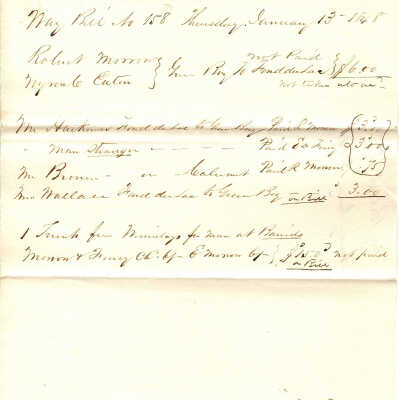 Way Bill No 158 Thursday January 13th 1848
Robert Morrow } Green Bay to Fond du Lac not Paid } $6.00
Myron C Eaton not taken into acct
Mr Harkness Fond du Lac to Green Bay Paid R Morrow 3.00
" Man Stranger - - - - Paid 3.00
Mr Brown - or Calumet Paid R Morrow .75
Mr Wallace Fond du Lac to Green Bay on Bill 3.00
1 Trunk from for man at
Morrow & Ch: by E Morrow by } $1.50 not paid
on Bill